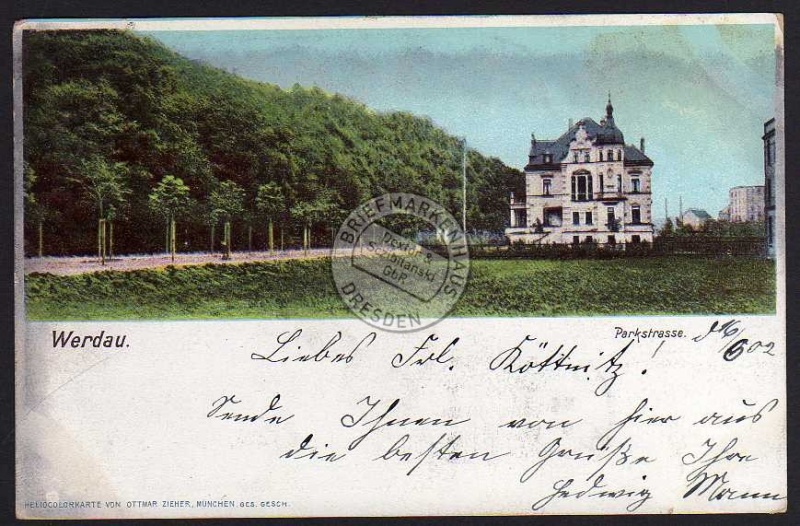 BRIEFMARKENHAUSE
DRESDEN
Werdau.
Parkstrasse.
d 16/6 02
Liebes Frl. Köttnitz!
Sende Ihnen von hier aus
die besten Grüße Ihre
Hedwig Mann
HELIOCOLORKARTE VON OTTMAR ZIEHER, MÜNCHEN GES. GESCH.